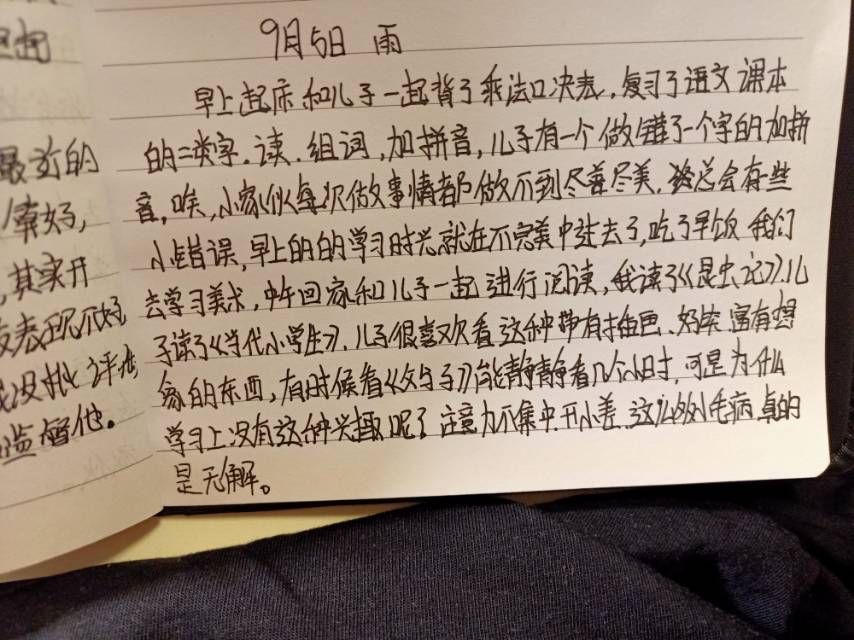 起把
最前的
清好,
,其实开
表现不好
没批评他
监督他。
9月5日 雨
早上起床和儿子一起背了乘法口决表,复习了语文课本
的二类字.读.组词,加拼音,儿子有一个做错了一个字的加拼
音,唉,小家伙每次做事情都做不到尽善尽美,总会有些
小错误,早上的的学习时光就在不完美中过去了,吃了早饭我们
去学习美术,中午回家和儿子一起进行阅读,我读了《昆虫记》.儿
子读了《当代小学生》,儿子很喜欢看这种带有插画.好笑.富有想
象的东西,有时候看《父与子》能静静看几个小时,可是为什么
学习上没有这种兴趣呢?注意力不集中.开小差.这么多小毛病真的
是无解。